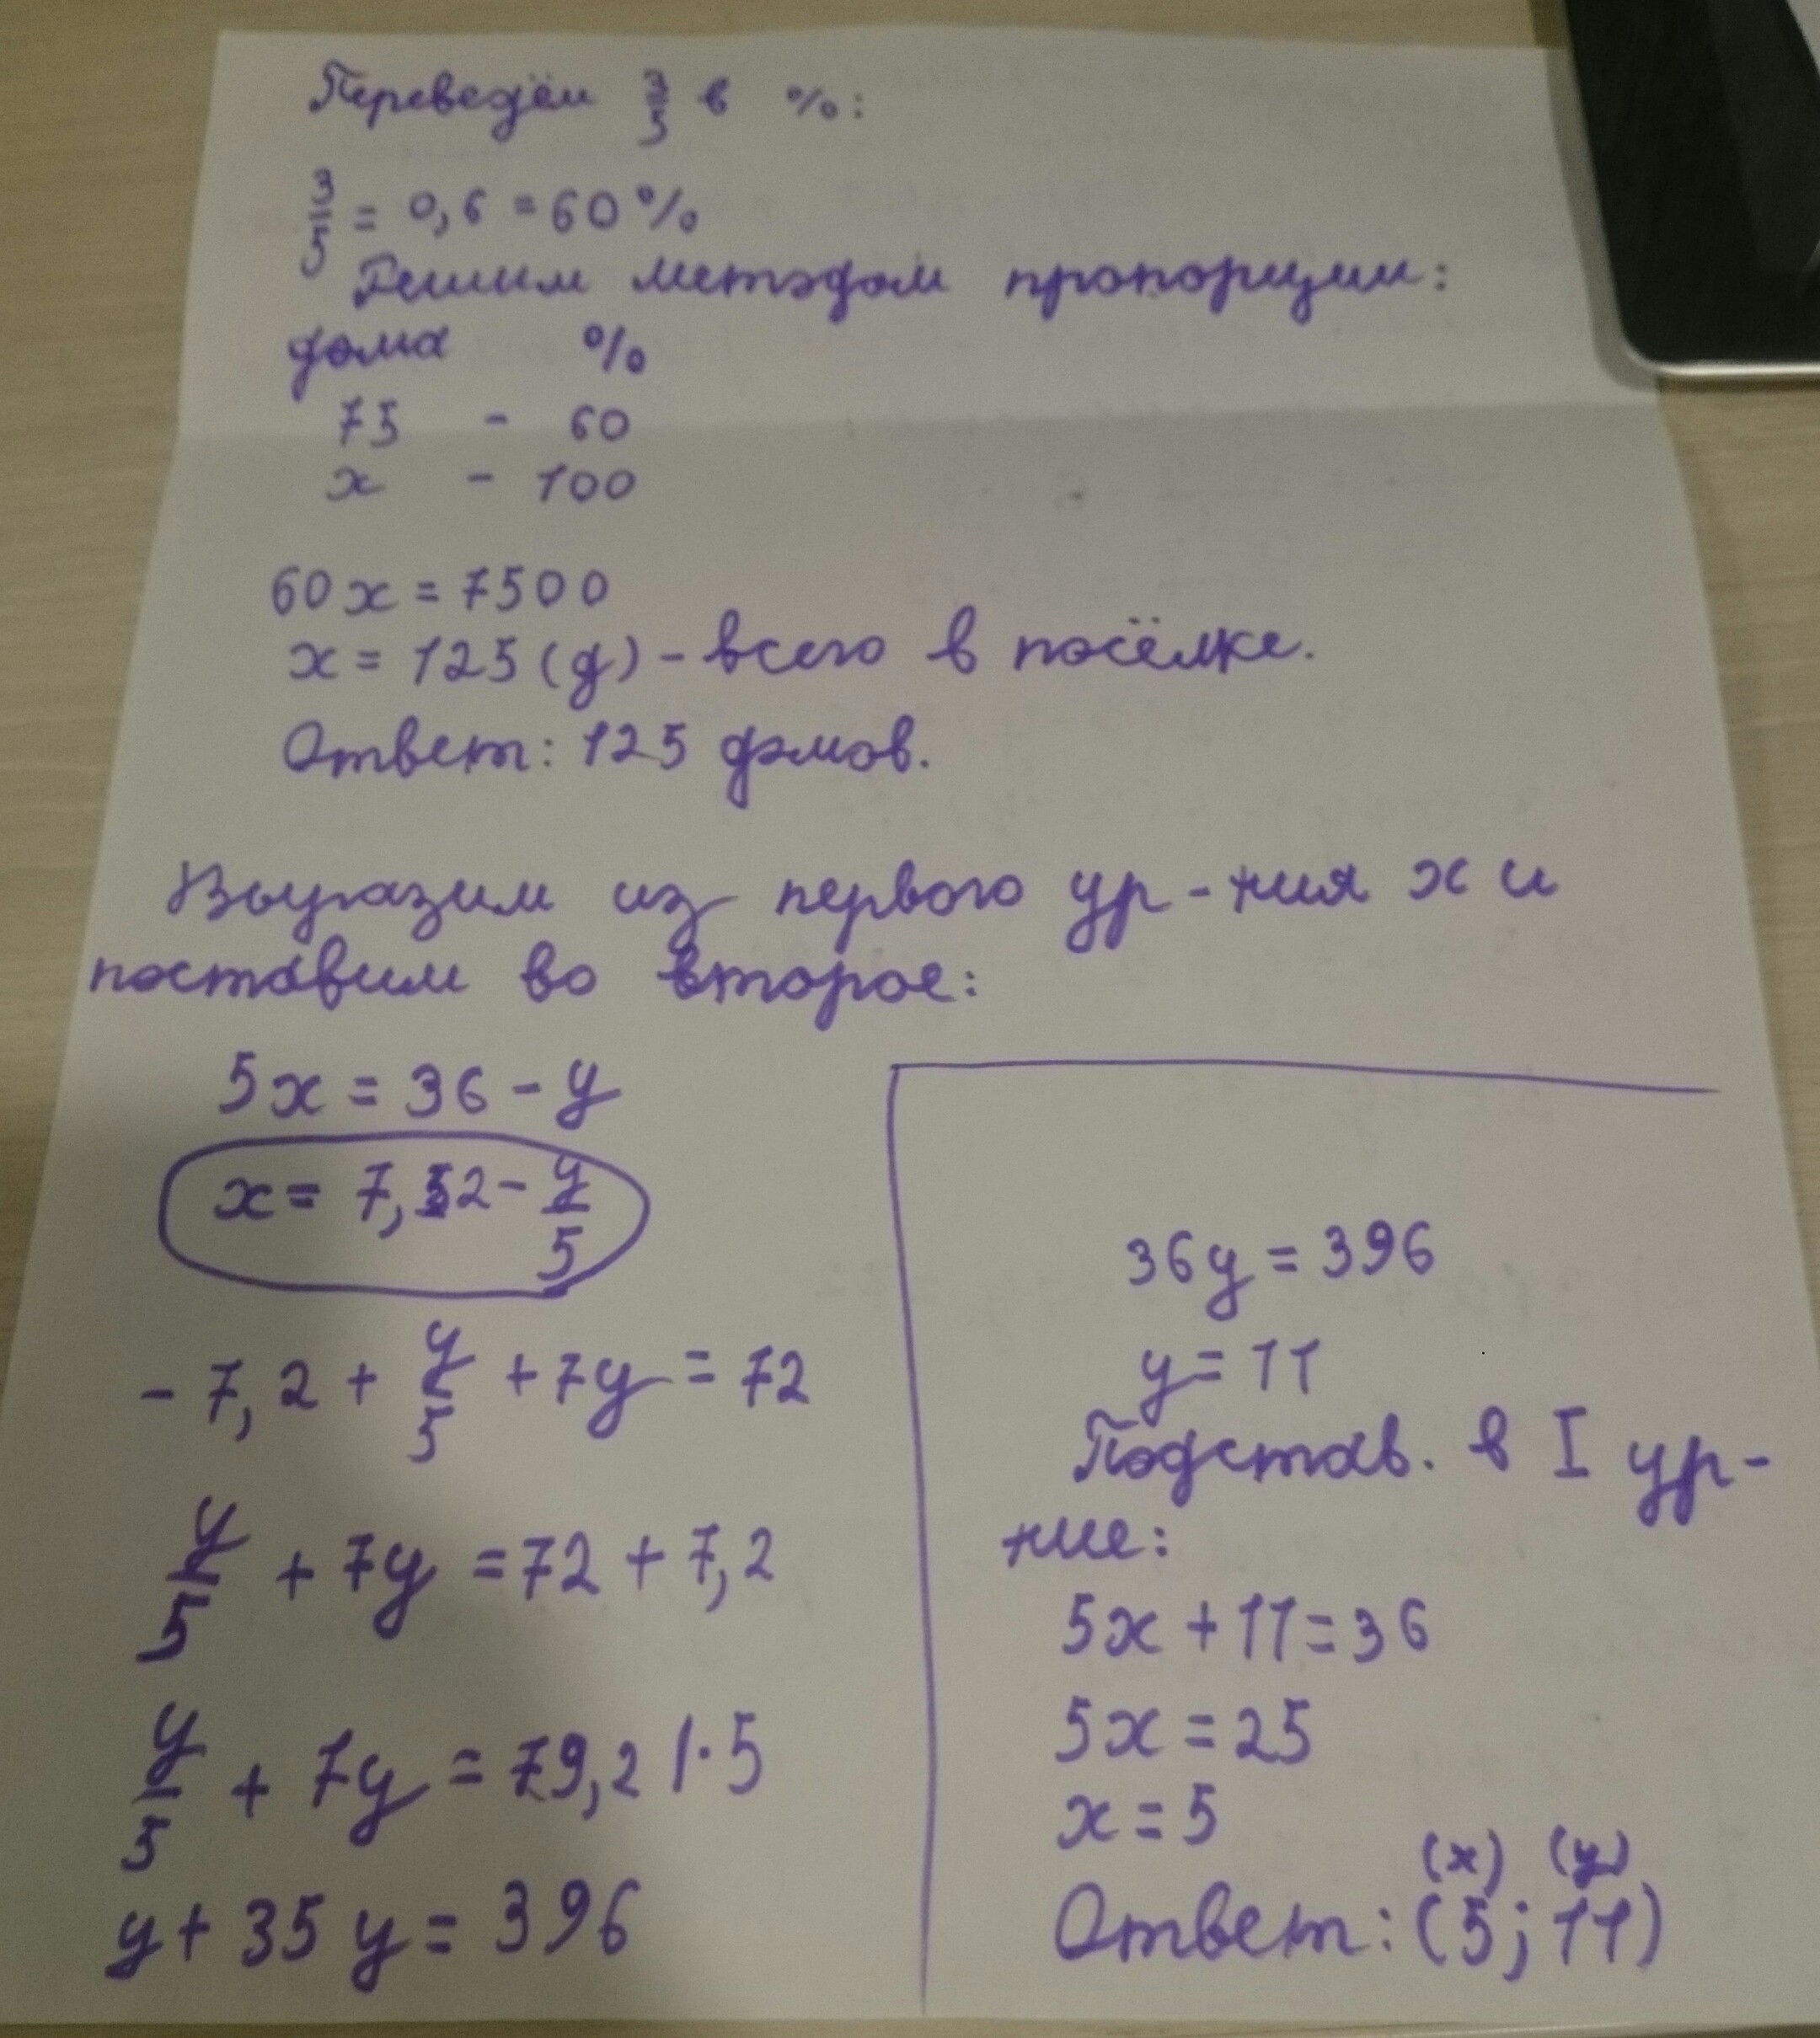 Переведём 3/5 в %:
3/5 = 0,6 = 60%
Решим методом пропорции:
дома %
75 - 60
x - 100
60x = 7500
x = 125 (д) - всего в посёлке.
Ответ: 125 домов.
Выразим из первого ур-ния x и
поставим во второе:
5x = 36 - y
x = 7,2 - y/5
- 7,2 + y/5 + 7y = 72
y/5 + 7y = 72 + 7,2
y/5 + 7y = 79,2 | · 5
y + 35y = 396
36y = 396
y = 11
Подстав. в I ур-
ние:
5x + 11 = 36
5x = 25
x = 5
(x) (y)
Ответ: (5; 11)